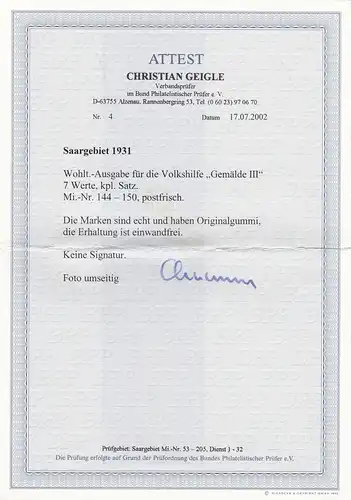 ATTEST
CHRISTIAN GEIGLE
Verbandsprüfer
im Bund Philatelistischer Prüfer e. V.
D-63755 Alzenau, Rannenbergring 53, Tel. (0 60 23) 97 06 70
Nr. 4 Datum 17.07.2002
Saargebiet 1931
Wohlt.-Ausgabe für die Volkshilfe „Gemälde III“
7 Werte, kpl. Satz.
Mi.-Nr. 144 – 150, postfrisch.
Die Marken sind echt und haben Originalgummi,
die Erhaltung ist einwandfrei.
Keine Signatur.
Foto umseitig
Prüfgebiet: Saargebiet Mi.-Nr. 53 – 205, Dienst 1 - 32
Die Prüfung erfolgte auf Grund der Prüfordnung des Bundes Philatelistischer Prüfer e.V.